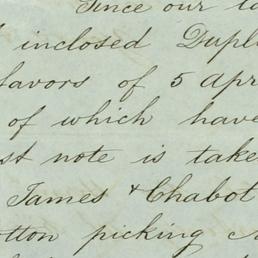 Since our la
inclosed Dupl
favors of 5 Apr
of which have
st note is take
James & Chabot
otton picking